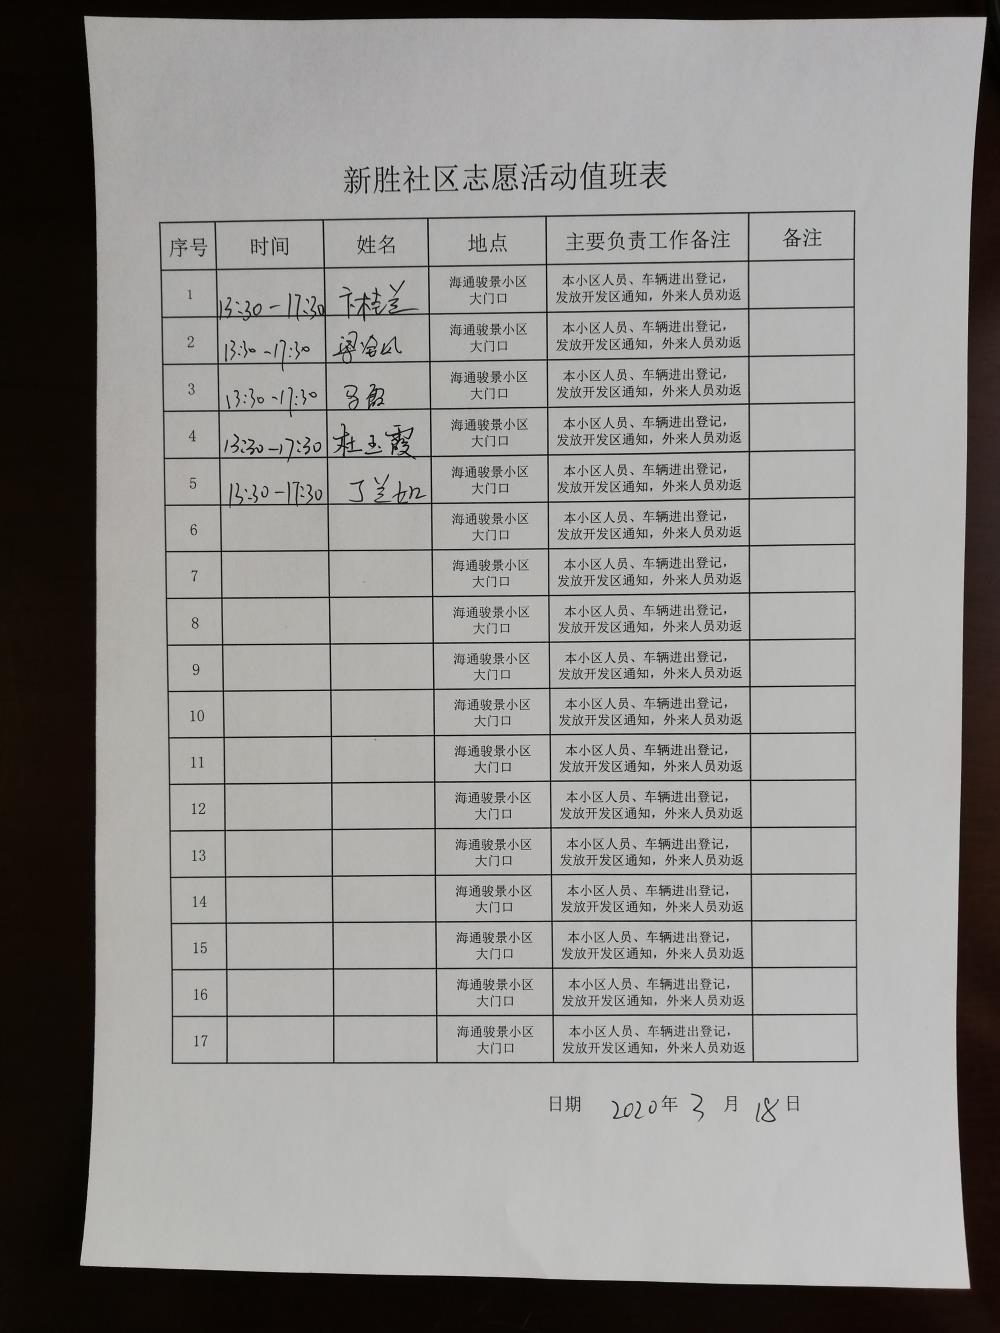 新胜社区志愿活动值班表
序号 时间 姓名 地点 主要负责工作备注 备注
1 13:30-17:30 卞桂兰 海通骏景小区 本小区人员、车辆进出登记，
大门口 发放开发区通知，外来人员劝返
2 13:30-17:30 海通骏景小区 本小区人员、车辆进出登记，
大门口 发放开发区通知，外来人员劝返
3 13:30-17:30 海通骏景小区 本小区人员、车辆进出登记，
大门口 发放开发区通知，外来人员劝返
4 13:30-17:30 杜玉霞 海通骏景小区 本小区人员、车辆进出登记，
大门口 发放开发区通知，外来人员劝返
5 13:30-17:30 丁兰如 海通骏景小区 本小区人员、车辆进出登记，
大门口 发放开发区通知，外来人员劝返
6 海通骏景小区 本小区人员、车辆进出登记，
大门口 发放开发区通知，外来人员劝返
7 海通骏景小区 本小区人员、车辆进出登记，
大门口 发放开发区通知，外来人员劝返
8 海通骏景小区 本小区人员、车辆进出登记，
大门口 发放开发区通知，外来人员劝返
9 海通骏景小区 本小区人员、车辆进出登记，
大门口 发放开发区通知，外来人员劝返
10 海通骏景小区 本小区人员、车辆进出登记，
大门口 发放开发区通知，外来人员劝返
11 海通骏景小区 本小区人员、车辆进出登记，
大门口 发放开发区通知，外来人员劝返
12 海通骏景小区 本小区人员、车辆进出登记，
大门口 发放开发区通知，外来人员劝返
13 海通骏景小区 本小区人员、车辆进出登记，
大门口 发放开发区通知，外来人员劝返
14 海通骏景小区 本小区人员、车辆进出登记，
大门口 发放开发区通知，外来人员劝返
15 海通骏景小区 本小区人员、车辆进出登记，
大门口 发放开发区通知，外来人员劝返
16 海通骏景小区 本小区人员、车辆进出登记，
大门口 发放开发区通知，外来人员劝返
17 海通骏景小区 本小区人员、车辆进出登记，
大门口 发放开发区通知，外来人员劝返
日期 2020年 3 月 18日